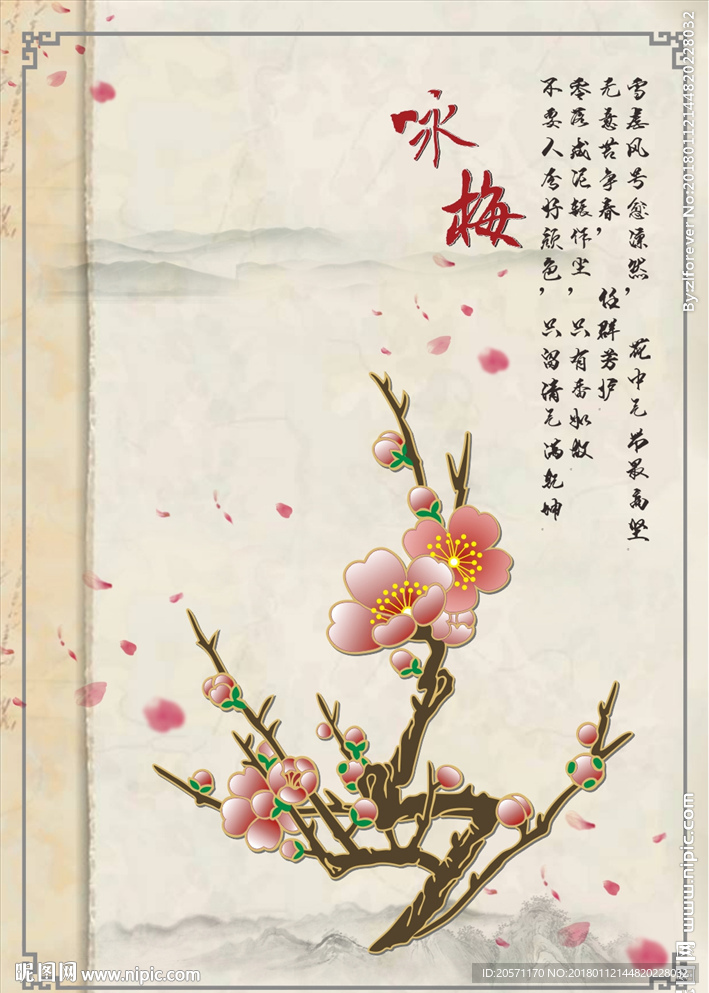 咏梅
雪虐风号愈凛然，花中气节最高坚
无意苦争春，任群芳妒
零落成泥辗作尘，只有香如故
不要人夸好颜色，只留清气满乾坤
By:zlforever No:20180112144820228032
昵图网 www.nipic.com
昵图网 www.nipic.com
ID:20571170 NO:20180112144820228032